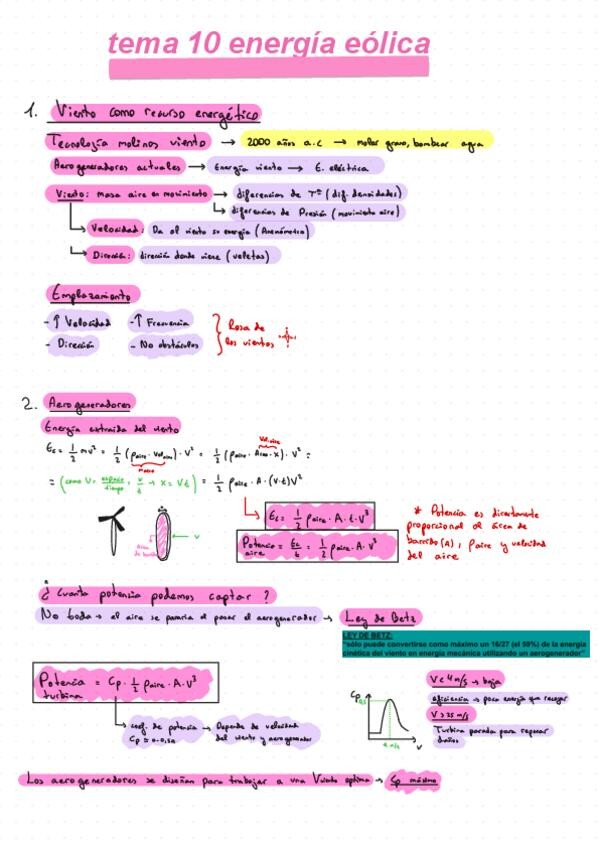 tema 10 energía eólica
1. Viento como recurso energético
Tecnología molinos viento → 2000 años a.C → moler grano, bombear agua
Aerogeneradores actuales → Energía viento → E. eléctrica
Viento: masa aire en movimiento → diferencias de Tª (dif. densidades)
↳ diferencias de Presión (movimiento aire)
↳ Velocidad: Da al viento su energía (Anemómetro)
↳ Dirección: dirección donde viene (veletas)
Emplazamiento
- ↑ Velocidad - ↑ Frecuencia
- Dirección - No obstáculos
Rosa de
los vientos
2. Aerogeneradores
Energía extraída del viento
Vol. aire
Ec = 1/2 mv² = 1/2 (ρaire · Volaire) · V² = 1/2 (ρaire · Area · x) · V² =
masa
= (como V = espacio/tiempo = x/t → x = Vt) = 1/2 ρaire · A · (V·t) V²
Ec = 1/2 ρaire · A · t · V³
Potencia aire = Ec/t = 1/2 ρaire · A · V³
* Potencia es directamente
proporcional al área de
barrido (A), ρaire y velocidad
del aire
Área
de barrido
V
¿Cuanta potencia podemos captar?
No toda → el aire se pararía al pasar el aerogenerador → Ley de Betz
LEY DE BETZ:
"sólo puede convertirse como máximo un 16/27 (el 59%) de la energía
cinética del viento en energía mecánica utilizando un aerogenerador"
Potencia turbina = Cp · 1/2 ρaire · A · V³
↳ coef. de potencia → Depende de velocidad
del viento y aerogenerador
Cp
V
V < 4 m/s → baja
eficiencia → poca energía que recoger
V > 25 m/s
Turbina parada para
daños
Los aerogeneradores se diseñan para trabajar a una Viento optima → Cp máximo